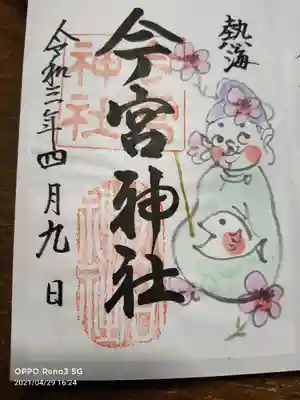 熱海
今宮神社
令和三年四月九日
神社
OPPO Reno3 5G
2021/04/29 16:24